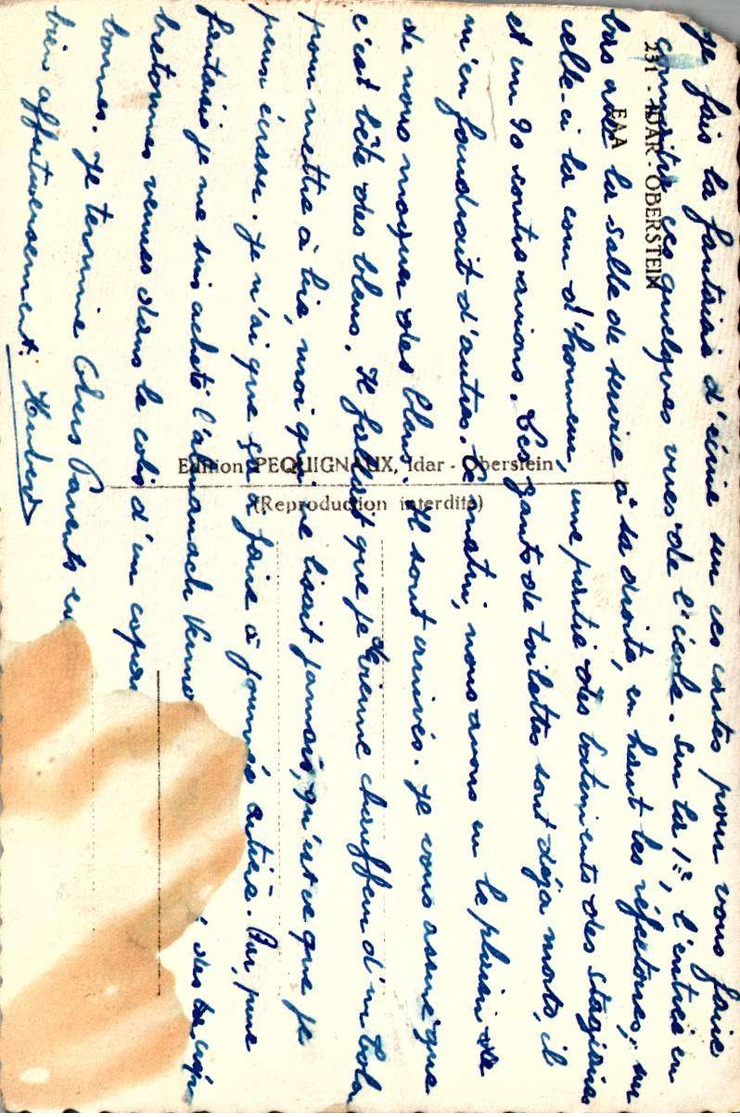 Je fais la fantaisie d'écrire sur ces cartes pour vous faire
connaitre ces quelques vues de l'école. Sur la 1re, l'entrée en
bas avec la salle de service à sa droite, en haut les réfectoires, sur
celle-ci la cour d'honneur, une partie des batiments des stagiaires
et un 90 contre avions. Les gants de toilettes sont déja morts, il
m'en faudrait d'autres. Ce matin, nous avons eu le plaisir de
de nous moquer des bleus. Il sont arrivés. Je vous assure que
c'est bête des bleus. Il fallait que je devienne chauffeur d'un
pour mettre à lire, moi qui ne lisait jamais, qu'est ce que je
peux écraser. Je n'ai que ça à faire à journée entière. Par pure
fantaisie je me suis acheté l'almanach Vermo des
bretonnes venues dans le colis d'un copain
bonnes. Je termine Chers Parents en
bien affectueusement. Hubert
231 - IDAR-OBERSTEIN
EAA
Edition PEQUIGNAUX, Idar - Oberstein
(Reproduction interdite)